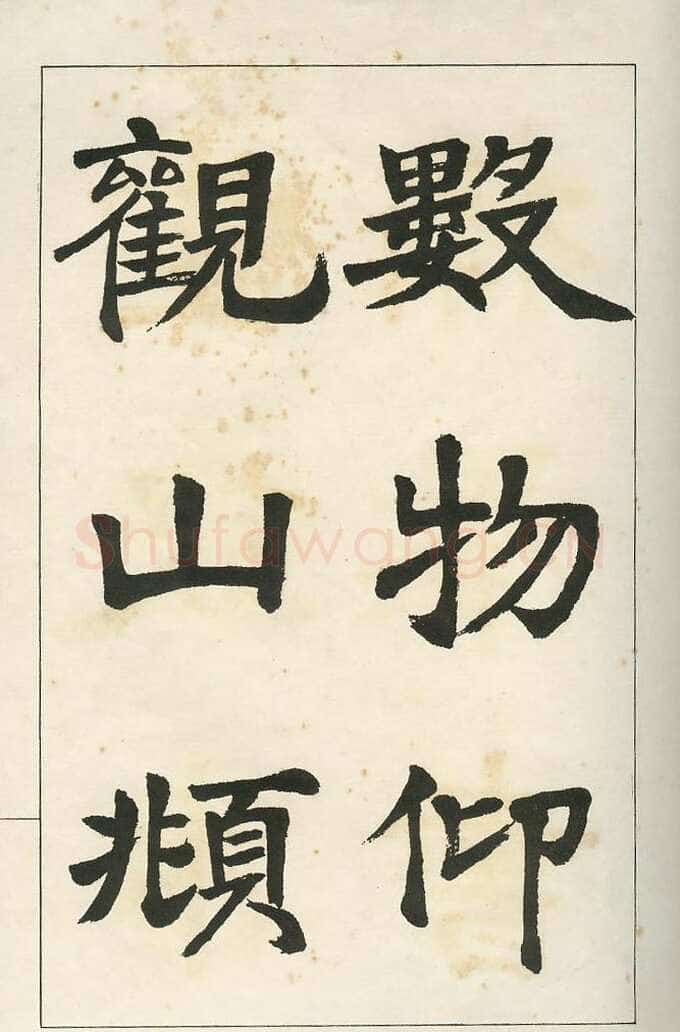 數物仰
觀山頫
Shufawang.CN